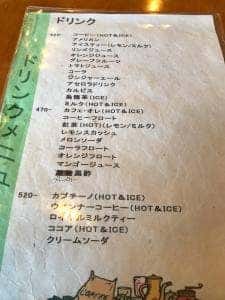 ドリンク
ドリンクメニュー
420- コーヒー(HOT&ICE)
アメリカン
アイスティー(レモン/ミルク)
リンゴジュース
オレンジジュース
グレープフルーツ
トマトジュース
コーラ
ジンジャーエール
アセロラドリンク
カルピス
烏龍茶(ICE)
ミルク(HOT&ICE)
470- カフェ・オレ(HOT&ICE)
コーヒーフロート
紅茶(HOT)(レモン/ミルク)
レモンスカッシュ
メロンソーダ
コーラフロート
オレンジフロート
マンゴージュース
黒酢
520- カプチーノ(HOT&ICE)
ウインナーコーヒー(HOT&ICE)
ロイヤルミルクティー
ココア(HOT&ICE)
クリームソーダ